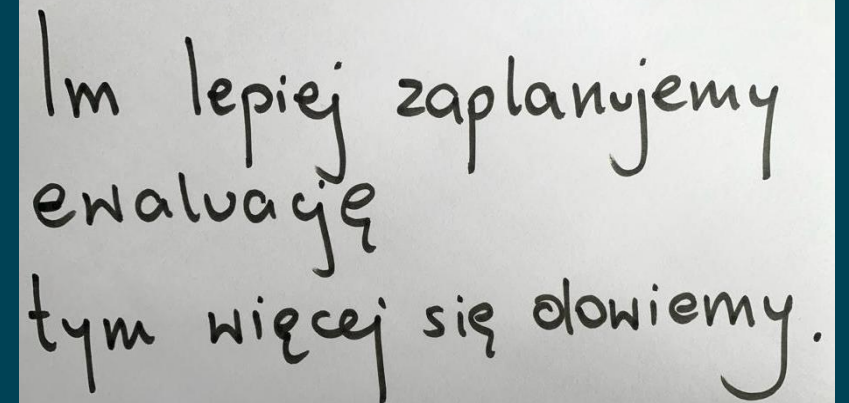 Im lepiej zaplanujemy
ewaluację
tym więcej się dowiemy.